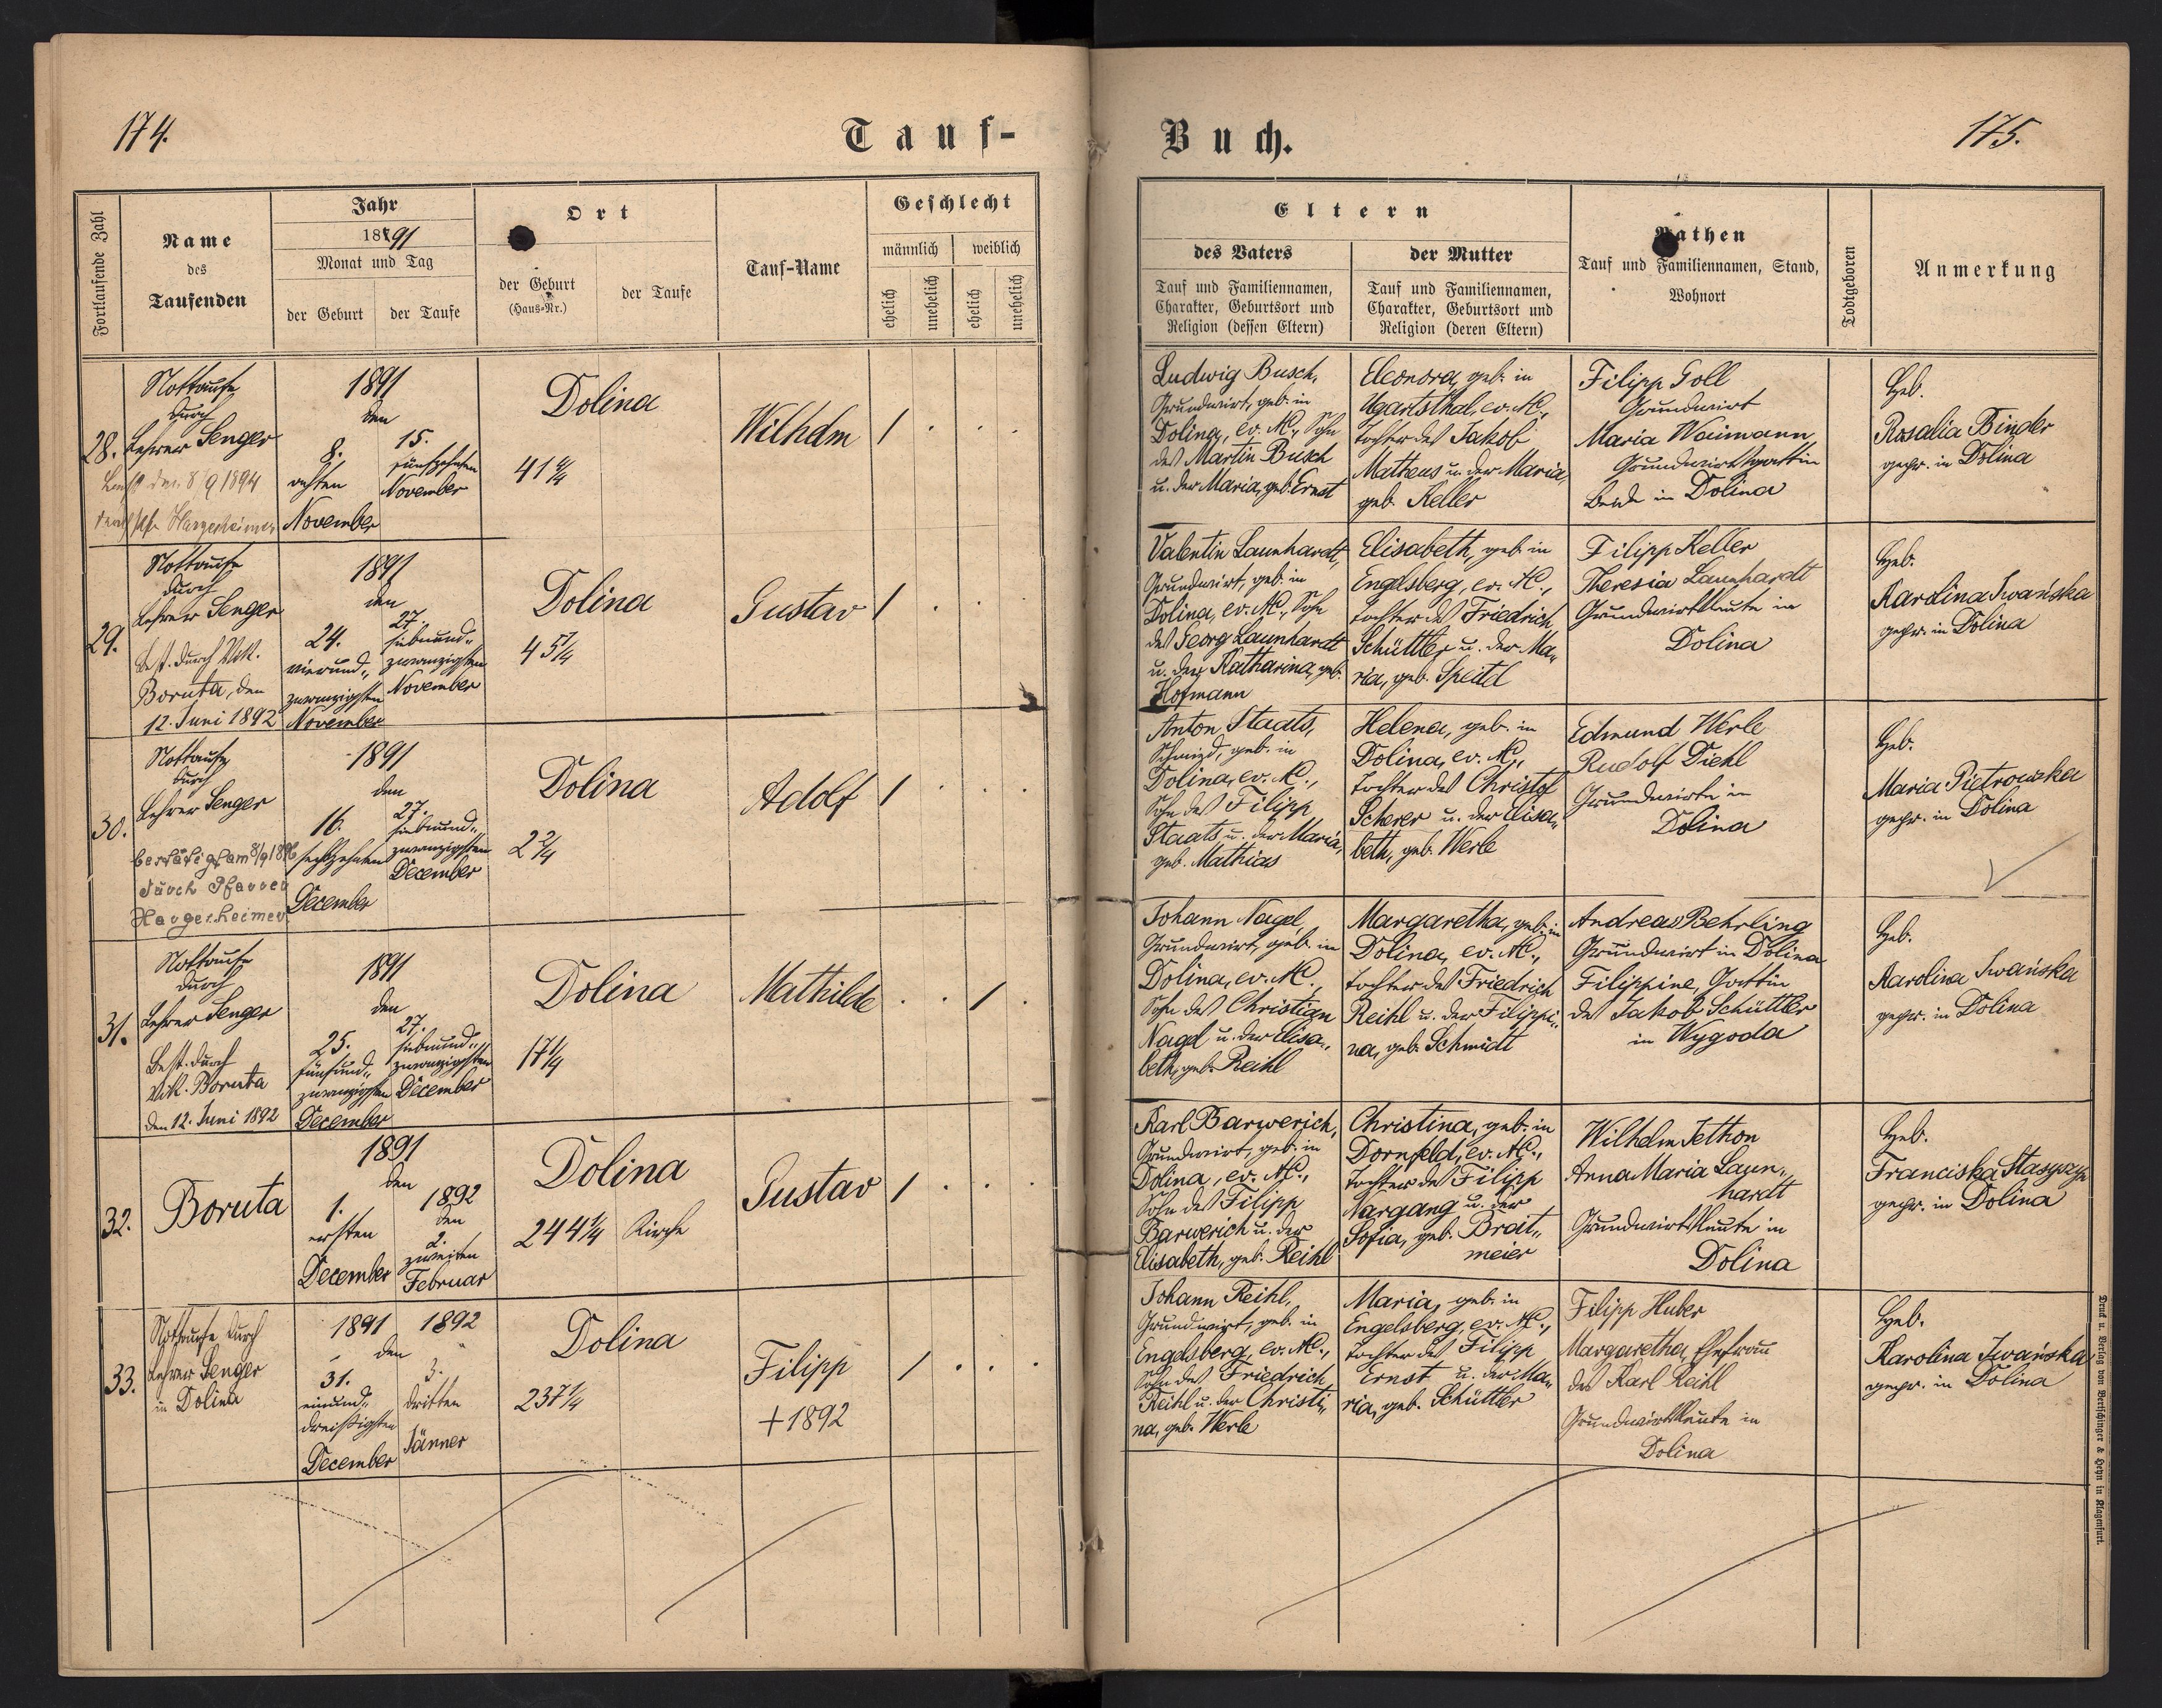 174.
Tauf-
Fortlaufende Zahl
Name
des
Taufenden
Jahr
1891
Monat und Tag
der Geburt
der Taufe
Ort
der Geburt
(Haus-Nr.)
der Taufe
Tauf-Name
Geschlecht
männlich
weiblich
ehelich
unehelich
ehelich
unehelich
28.
Nottaufe
durch
Lehrer Senger
den 8/9 1894
Hargesheimer
1891
den
8.
achten
November
15.
fünfzehnten
November
Dolina
41 4/4
Wilhelm
1 . . .
29.
Nottaufe
durch
Lehrer Senger
Best. durch Vik.
Boruta, den
12. Juni 1892
1891
den
24.
vierund„
zwanzigsten
November
27.
siebnund„
zwanzigsten
November
Dolina
4 5/4
Gustav
1 . . .
30.
Nottaufe
durch
Lehrer Senger
bestätigt am 8/9 1896
durch Pfarrer
Hargesheimer
1891
den
16.
sechzehnten
December
27.
siebnund„
zwanzigsten
December
Dolina
2 2/4
Adolf
1 . . .
31.
Nottaufe
durch
Lehrer Senger
Best. durch
Vik. Boruta
den 12. Juni 1892
1891
den
25.
fünfund„
zwanzigsten
December
27.
siebnund„
zwanzigsten
December
Dolina
17 1/4
Mathilde
. . 1 .
32.
Boruta
1891
den
1.
ersten
December
1892
den
2.
zweiten
Februar
Dolina
244 1/4
Kirche
Gustav
1 . . .
33.
Nottaufe durch
Lehrer Senger
in Dolina
1891
1892
den
31.
einund„
dreißigsten
December
3.
dritten
Jänner
Dolina
237 1/4
Filipp
+ 1892
1 . . .
Buch.
175.
Eltern
des Vaters
Tauf und Familiennamen,
Charakter, Geburtsort und
Religion (dessen Eltern)
der Mutter
Tauf und Familiennamen,
Charakter, Geburtsort und
Religion (deren Eltern)
Pathen
Tauf und Familiennamen, Stand,
Wohnort
Todtgeboren
Anmerkung
Ludwig Busch,
Grundwirt, geb. in
Dolina, ev. AC., Sohn
des Martin Busch
u. der Maria, geb. Ernst
Eleonora, geb. in
Ugartsthal, ev. AC.,
Tochter des Jakob
Matheus u. der Maria,
geb. Keller
Filipp Goll
Grundwirt
Maria Waimann
Grundwirtsgattin
Beide in Dolina
Heb.
Rosalia Binder
gepr. in Dolina
Valentin Launhardt,
Grundwirt, geb. in
Dolina, ev. AC., Sohn
des Georg Launhardt
u. der Katharina, geb.
Hofmann
Elisabeth, geb. in
Engelsberg, ev. AC.,
Tochter des Friedrich
Schüttler u. der Ma„
ria, geb. Speitel
Filipp Keller
Theresia Launhardt
Grundwirtsleute in
Dolina
Heb.
Karolina Iwańska
gepr. in Dolina
Anton Staats,
Schmied, geb. in
Dolina, ev. AC.,
Sohn des Filipp
Staats u. der Maria,
geb. Mathias
Helena, geb. in
Dolina, ev. AC.,
Tochter des Christof
Scherer u. der Elisa„
beth, geb. Werle
Edmund Werle
Rudolf Diehl
Grundwirte in
Dolina
Heb.
Maria Pietrowska
gepr. in Dolina
Johann Nagel,
Grundwirt, geb. in
Dolina, ev. AC.,
Sohn des Christian
Nagel u. der Elisa„
beth, geb. Reihl
Margaretha, geb. in
Dolina, ev. AC.,
Tochter des Friedrich
Reihl u. der Filippi„
na, geb. Schmidt
Andreas Behrling
Grundwirt in Dolina
Filippine, Gattin
des Jakob Schüttler
in Wygoda
Heb.
Karolina Iwańska
gepr. in Dolina
Karl Barwerich,
Grundwirt, geb. in
Dolina, ev. AC.,
Sohn des Filipp
Barwerich u. der
Elisabeth, geb. Reihl
Christina, geb. in
Dornfeld, ev. AC.,
Tochter des Filipp
Nargang u. der
Sofia, geb. Brait„
meier
Wilhelm Jethon
Anna Maria Laun„
hardt
Grundwirtsleute in
Dolina
Heb.
Franciska
gepr. in Dolina
Johann Reihl,
Grundwirt, geb. in
Engelsberg, ev. AC.,
Sohn des Friedrich
Reihl u. der Christi„
na, geb. Werle
Maria, geb. in
Engelsberg, ev. AC.,
Tochter des Filipp
Ernst u. der Ma„
ria, geb. Schüttler
Filipp Huber
Margaretha, Ehefrau
des Karl Reihl
Grundwirtsleute in
Dolina
Heb.
Karolina Iwańska
gepr. in Dolina
Druck u. Verlag von Bertschinger & Heyn in Klagenfurt.